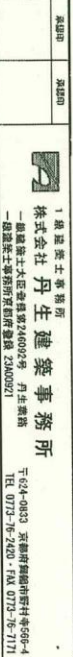 承認印
承認印
1級建築士事務所
株式会社 丹生建築事務所
一級建築士大臣登録第246092号 丹生業路
一級建築士事務所京都府登録 23A00921
〒624-0833 京都府舞鶴市野村寺566-4
TEL 0773-76-2420・FAX 0773-76-7171